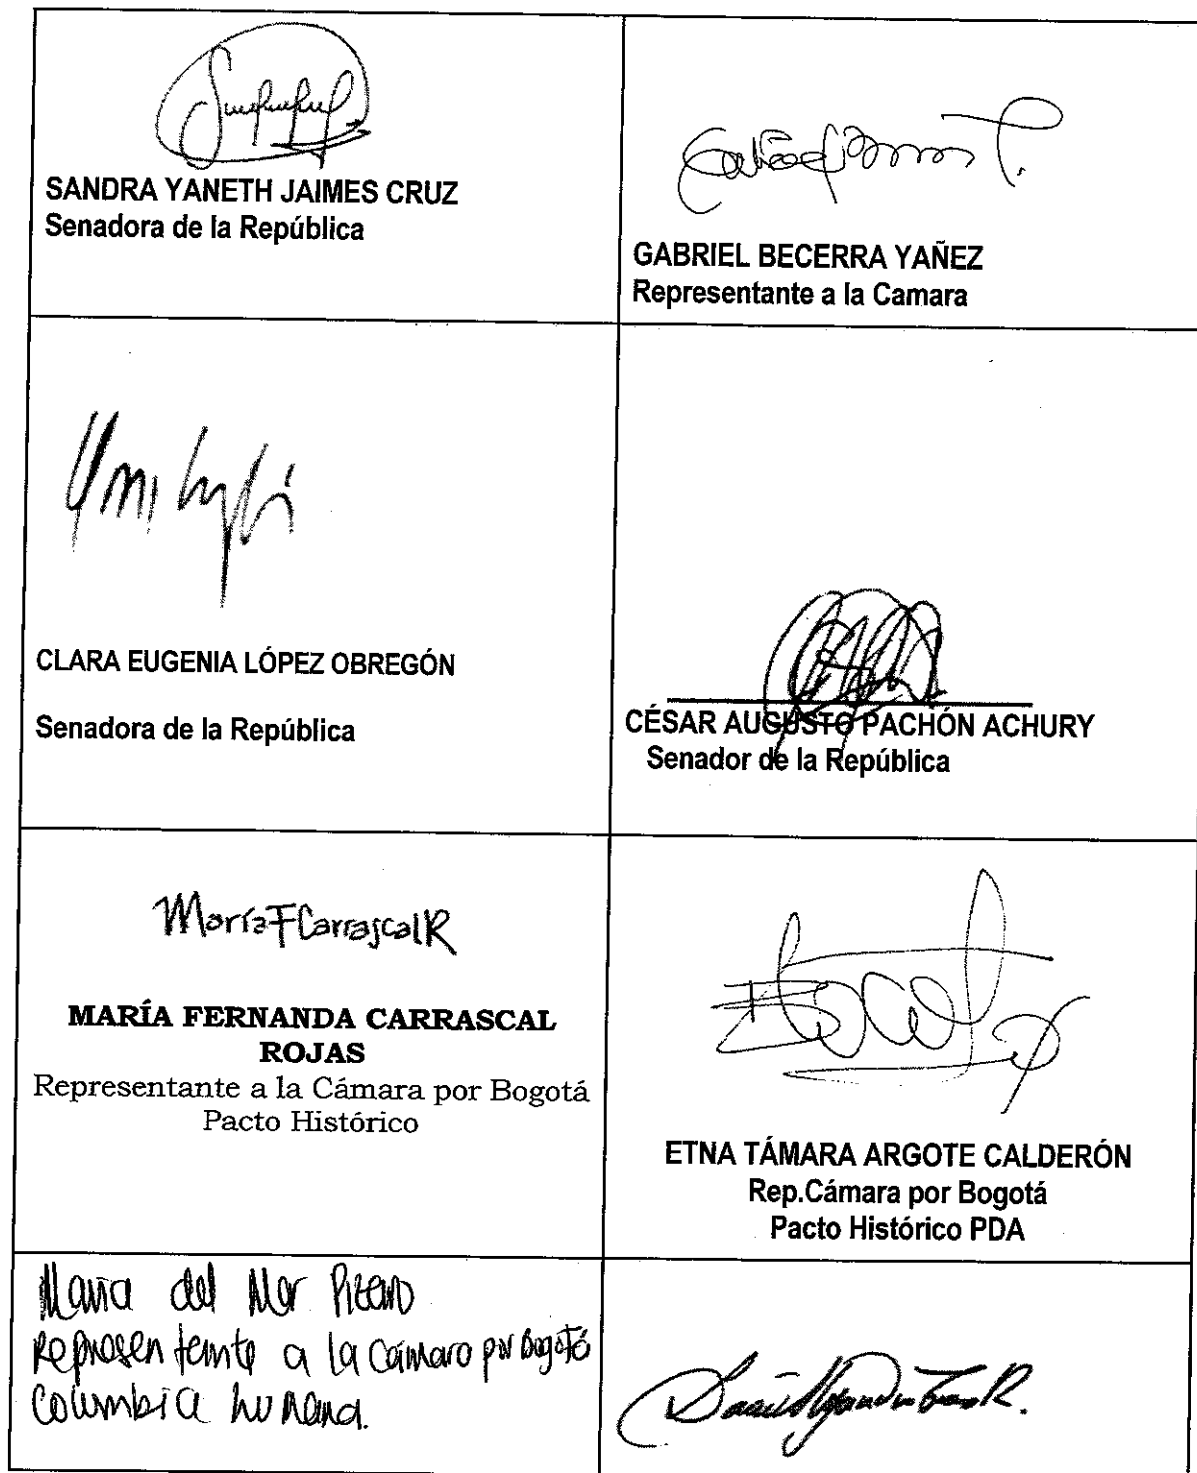 SANDRA YANETH JAIMES CRUZ
Senadora de la República
GABRIEL BECERRA YAÑEZ
Representante a la Camara
CLARA EUGENIA LÓPEZ OBREGÓN
Senadora de la República
CÉSAR AUGUSTO PACHÓN ACHURY
Senador de la República
MaríaFCarrascalR
MARÍA FERNANDA CARRASCAL
ROJAS
Representante a la Cámara por Bogotá
Pacto Histórico
ETNA TÁMARA ARGOTE CALDERÓN
Rep.Cámara por Bogotá
Pacto Histórico PDA
Maria del Mar Pizarro
Representante a la Cámara por Bogotá
Colombia humana.